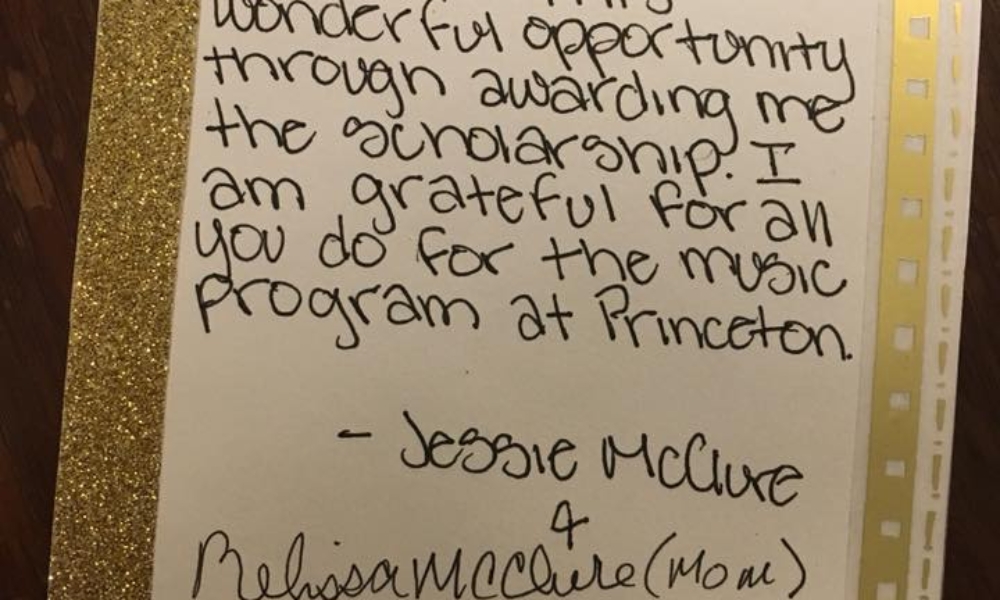 wonderful opportunity
through awarding me
the scholarship. I
am grateful for all
you do for the music
program at Princeton.
- Jessie McClure
&
Melissa McClure (Mom)